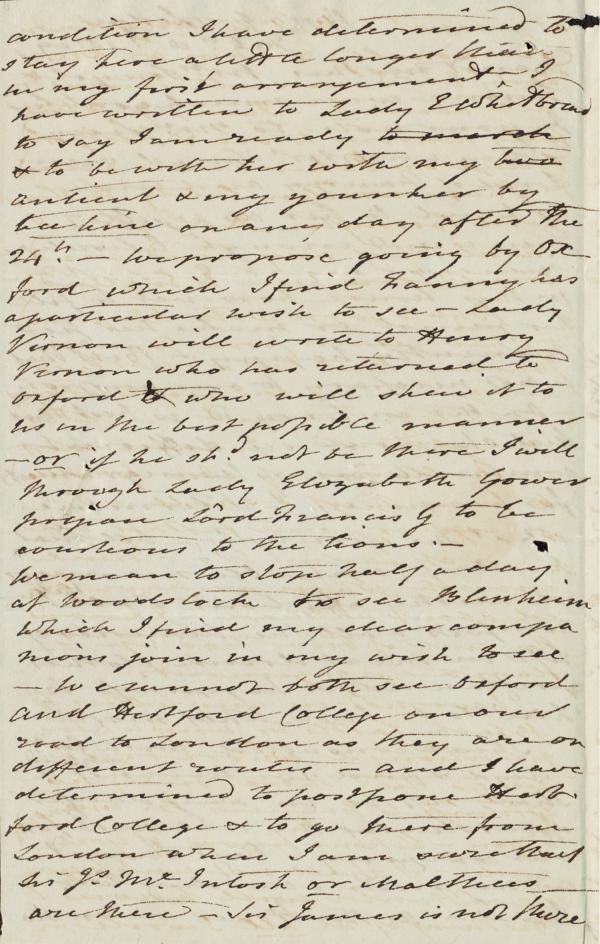 condition I have determined to
stay here a little longer than
in my first arrangement – I
have written to Lady E Whitbread
to say I am ready to march
& to be with her with my two
antient & my younker by
tee time on any day after the
24th. – We propose going by Ox
ford which I find Fanny has
a particular wish to see – Lady
Vernon will write to Henry
Vernon who has returned to
Oxford & who will shew it to
us in the best possible manner
– or if he shd not be there I will
through Lady Elizabeth Gower
prepare Lord Francis G to be
courteous to the lions. –
We mean to stop half a day
at Woodstock to see Blenheim
which I find my dear compa
nions join in my wish to see
– We cannot both see Oxford
and Hertford College on our
road to London as they are on
different routes – and I have
determined to postpone Hert
ford College & to go there from
London when I am sure that
Sir Js. Mc. Intosh or Malthus
are there – Sir James is not there